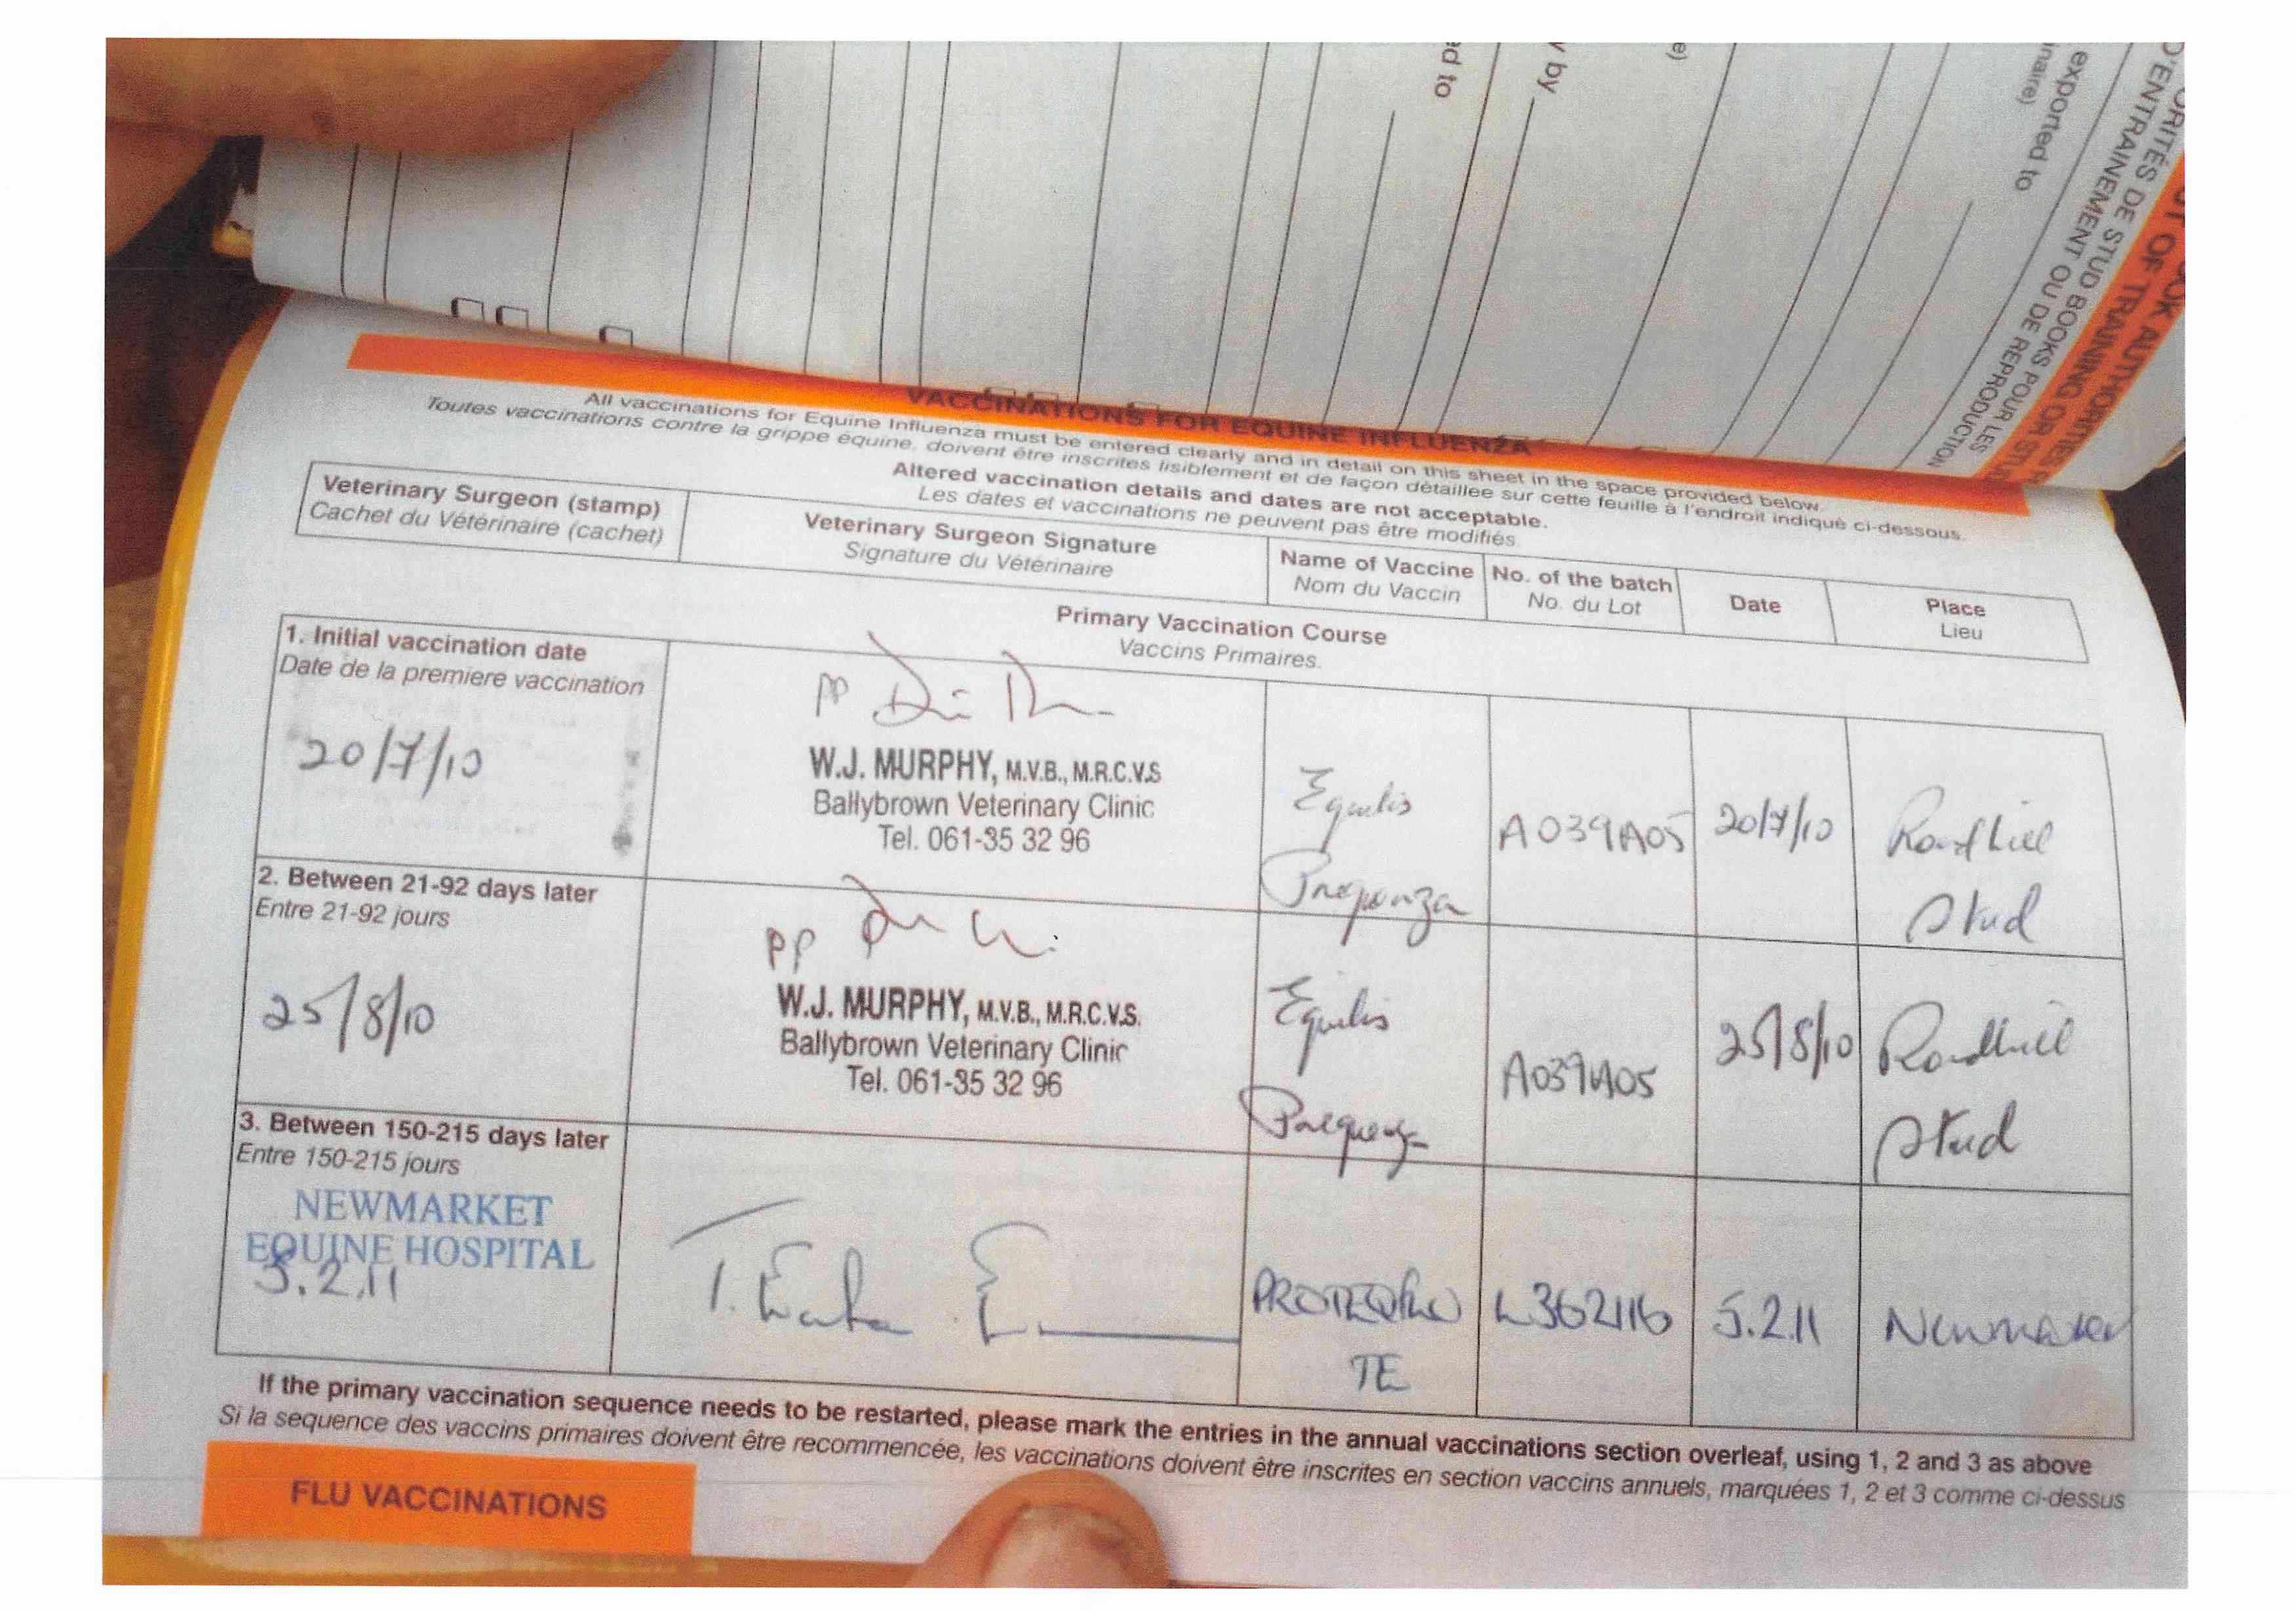 ed to
y by
e)
exported to
inaire)
ORITÉS DE STUD BOOKS POUR LES
D'ENTRAINEMENT OU DE REPRODUCTION
OOK AUTHORITIES
ST OF TRAINING OR STUD
VACCINATIONS FOR EQUINE INFLUENZA
All vaccinations for Equine Influenza must be entered clearly and in detail on this sheet in the space provided below.
Toutes vaccinations contre la grippe équine, doivent être inscrites lisiblement et de façon détaillée sur cette feuille à l'endroit indiqué ci-dessous.
Altered vaccination details and dates are not acceptable.
Les dates et vaccinations ne peuvent pas être modifiés
Veterinary Surgeon (stamp)
Cachet du Vétérinaire (cachet)
Veterinary Surgeon Signature
Signature du Vétérinaire
Name of Vaccine
Nom du Vaccin
No. of the batch
No. du Lot
Date
Place
Lieu
Primary Vaccination Course
Vaccins Primaires.
1. Initial vaccination date
Date de la premiere vaccination
20/7/10
pp
W.J. MURPHY, M.V.B., M.R.C.V.S
Ballybrown Veterinary Clinic
Tel. 061-35 32 96
Equilis
Prequenza
A039A05
20/7/10
Roadhill
Stud
2. Between 21-92 days later
Entre 21-92 jours
25/8/10
pp
W.J. MURPHY, M.V.B., M.R.C.V.S.
Ballybrown Veterinary Clinic
Tel. 061-35 32 96
Equilis
Prequenza
A039A05
25/8/10
Roadhill
Stud
3. Between 150-215 days later
Entre 150-215 jours
NEWMARKET
EQUINE HOSPITAL
5.2.11
T.
PROTEQFLU
TE
L362116
5.2.11
Newmarket
If the primary vaccination sequence needs to be restarted, please mark the entries in the annual vaccinations section overleaf, using 1, 2 and 3 as above
Si la sequence des vaccins primaires doivent être recommencée, les vaccinations doivent être inscrites en section vaccins annuels, marquées 1, 2 et 3 comme ci-dessus
FLU VACCINATIONS